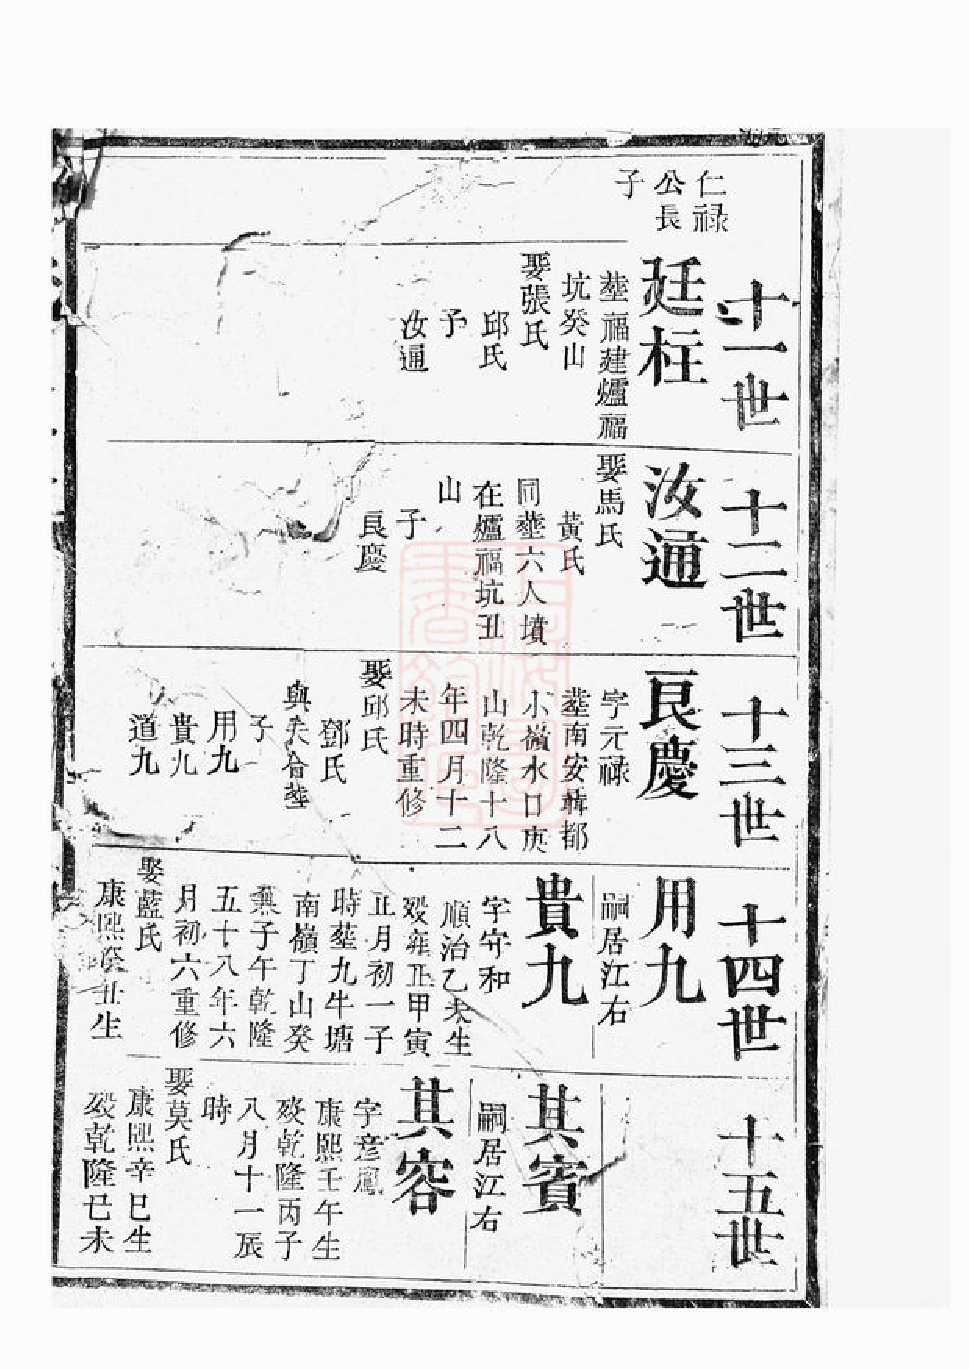 仁禄
公長
子
十一世
廷柱
塟福建爐福
坑癸山
娶張氏
邱氏
子
汝通
十二世
汝通
娶馬氏
黃氏
同塟六人墳
在爐福坑丑
山
子
良慶
十三世
良慶
字元禄
塟南安 都
小嶺水口庚
山乾隆十八
年四月十二
未時重修
娶邱氏
鄧氏
與夫合塟
子
用九
貴九
道九
十四世
用九
嗣居江右
貴九
字守和
順治乙未生
殁雍正甲寅
正月初一子
時塟九牛塘
南嶺丁山癸
兼子午乾隆
五十八年六
月初六重修
娶藍氏
康熙癸丑生
十五世
其賓
嗣居江右
其容
字彦鳳
康熙壬午生
殁乾隆丙子
八月十一辰
時
娶莫氏
康熙辛巳生
殁乾隆已未